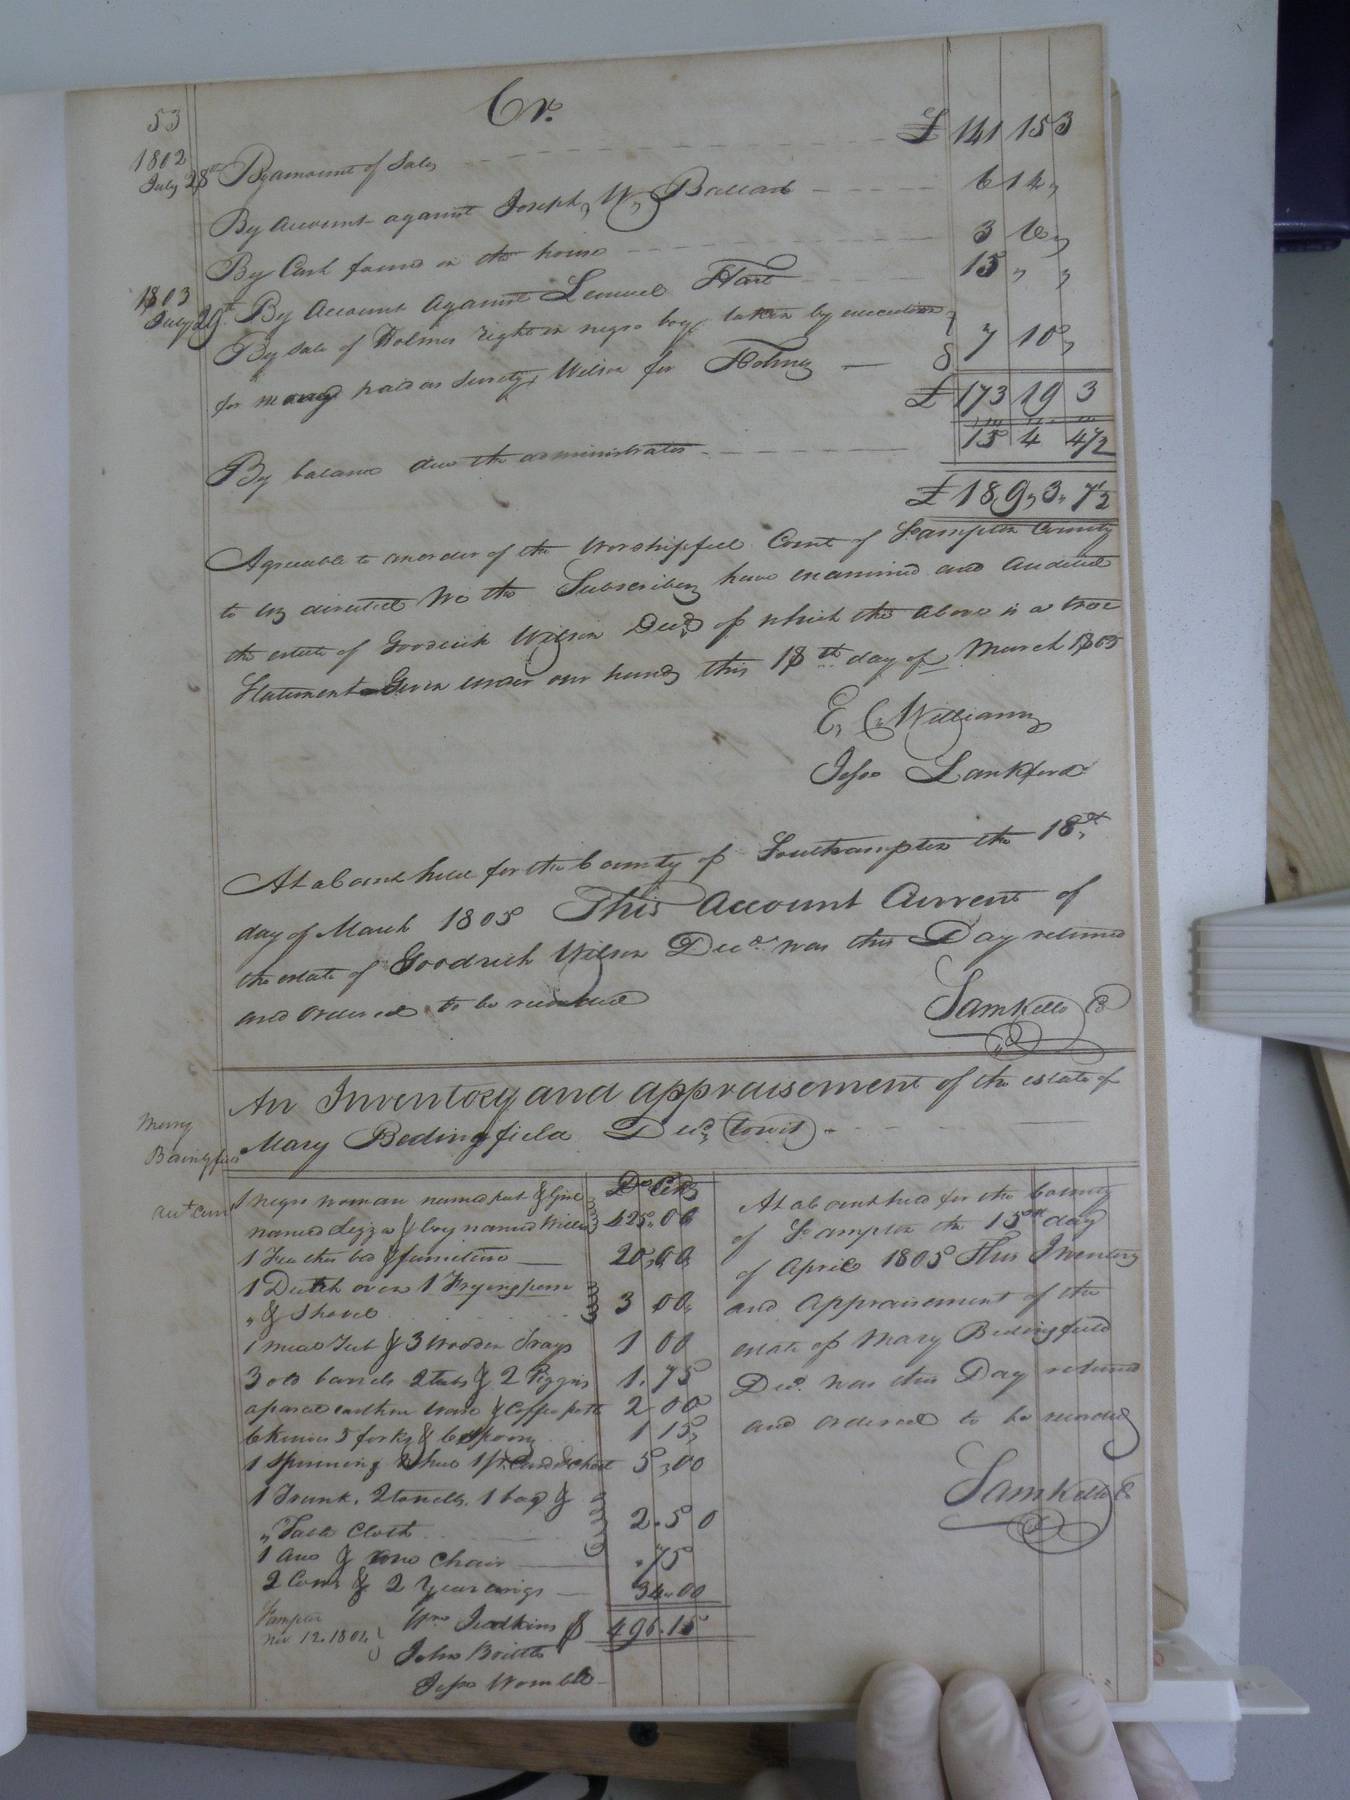 53
Cr.
1802
July 28th By amount of Sales £ 141 15 3
By Account against Joseph, W, Ballard 6 12 "
By Cash found in the house 3 6 "
1803
July 29th By Account Against Lemuel Hart 15 " "
By sale of Holmes right in negro boy, taken by execution
for money paid as Surety, Wilson for Holmes 7 10 "
£ 173 19 3
By balance due the administrator 15 4 4½
£ 189, 3, 7½
Agreeable to an order of the Worshipfull Court of S.hampton County
to us directed We the Subscribers have examined and Audited
the estate of Goodrich Wilson Decd, of which the above is a true
Statement Given under our hands this 18th day of March 1805
E, C, Williams
Jesse Lankford
At a Court held for the County of Southampton the 18th,
day of March 1805 This Account Current of
the estate of Goodrich Wilson Decd. was this Day returned
and Ordered to be recorded
Sam Kello C
An Inventory and appraisement of the estate of
Mary Bedingfield Decd, (towit)
D. Cts
1 negro woman named & Girl
named & boy named Willis 425,00
1 Feather bed & furniture 20,00
1 Dutch oven 1 Fryingpan
" & Shovel 3 00
1 meal Tub & 3 Wooden Trays 1 00
3 old barrels 2 tubs & 2 Piggins 1.75
a parcel earthen Ware & Coffee pott 2 00
6 Knives 5 forks & 6 Spoons 1 15
1 Spinning Wheel 1 pr. Cards & Chest 5,00
1 Trunk, 2 towells, 1 bag &
" Table Cloth 2.50
1 & one Chair .75
2 Cows & 2 Yearlings 34.00
S.hampton
Nov 12. 1804
Wm Judkins $ 496.15
John Britt
Jesse Womble
At a Court held for the County
of S.hampton the 15th day
of April 1805 This Inventory
and Appraisement of the
estate of Mary Bedingfield
Decd. was this Day returned
and Ordered to be recorded
Sam Kello C